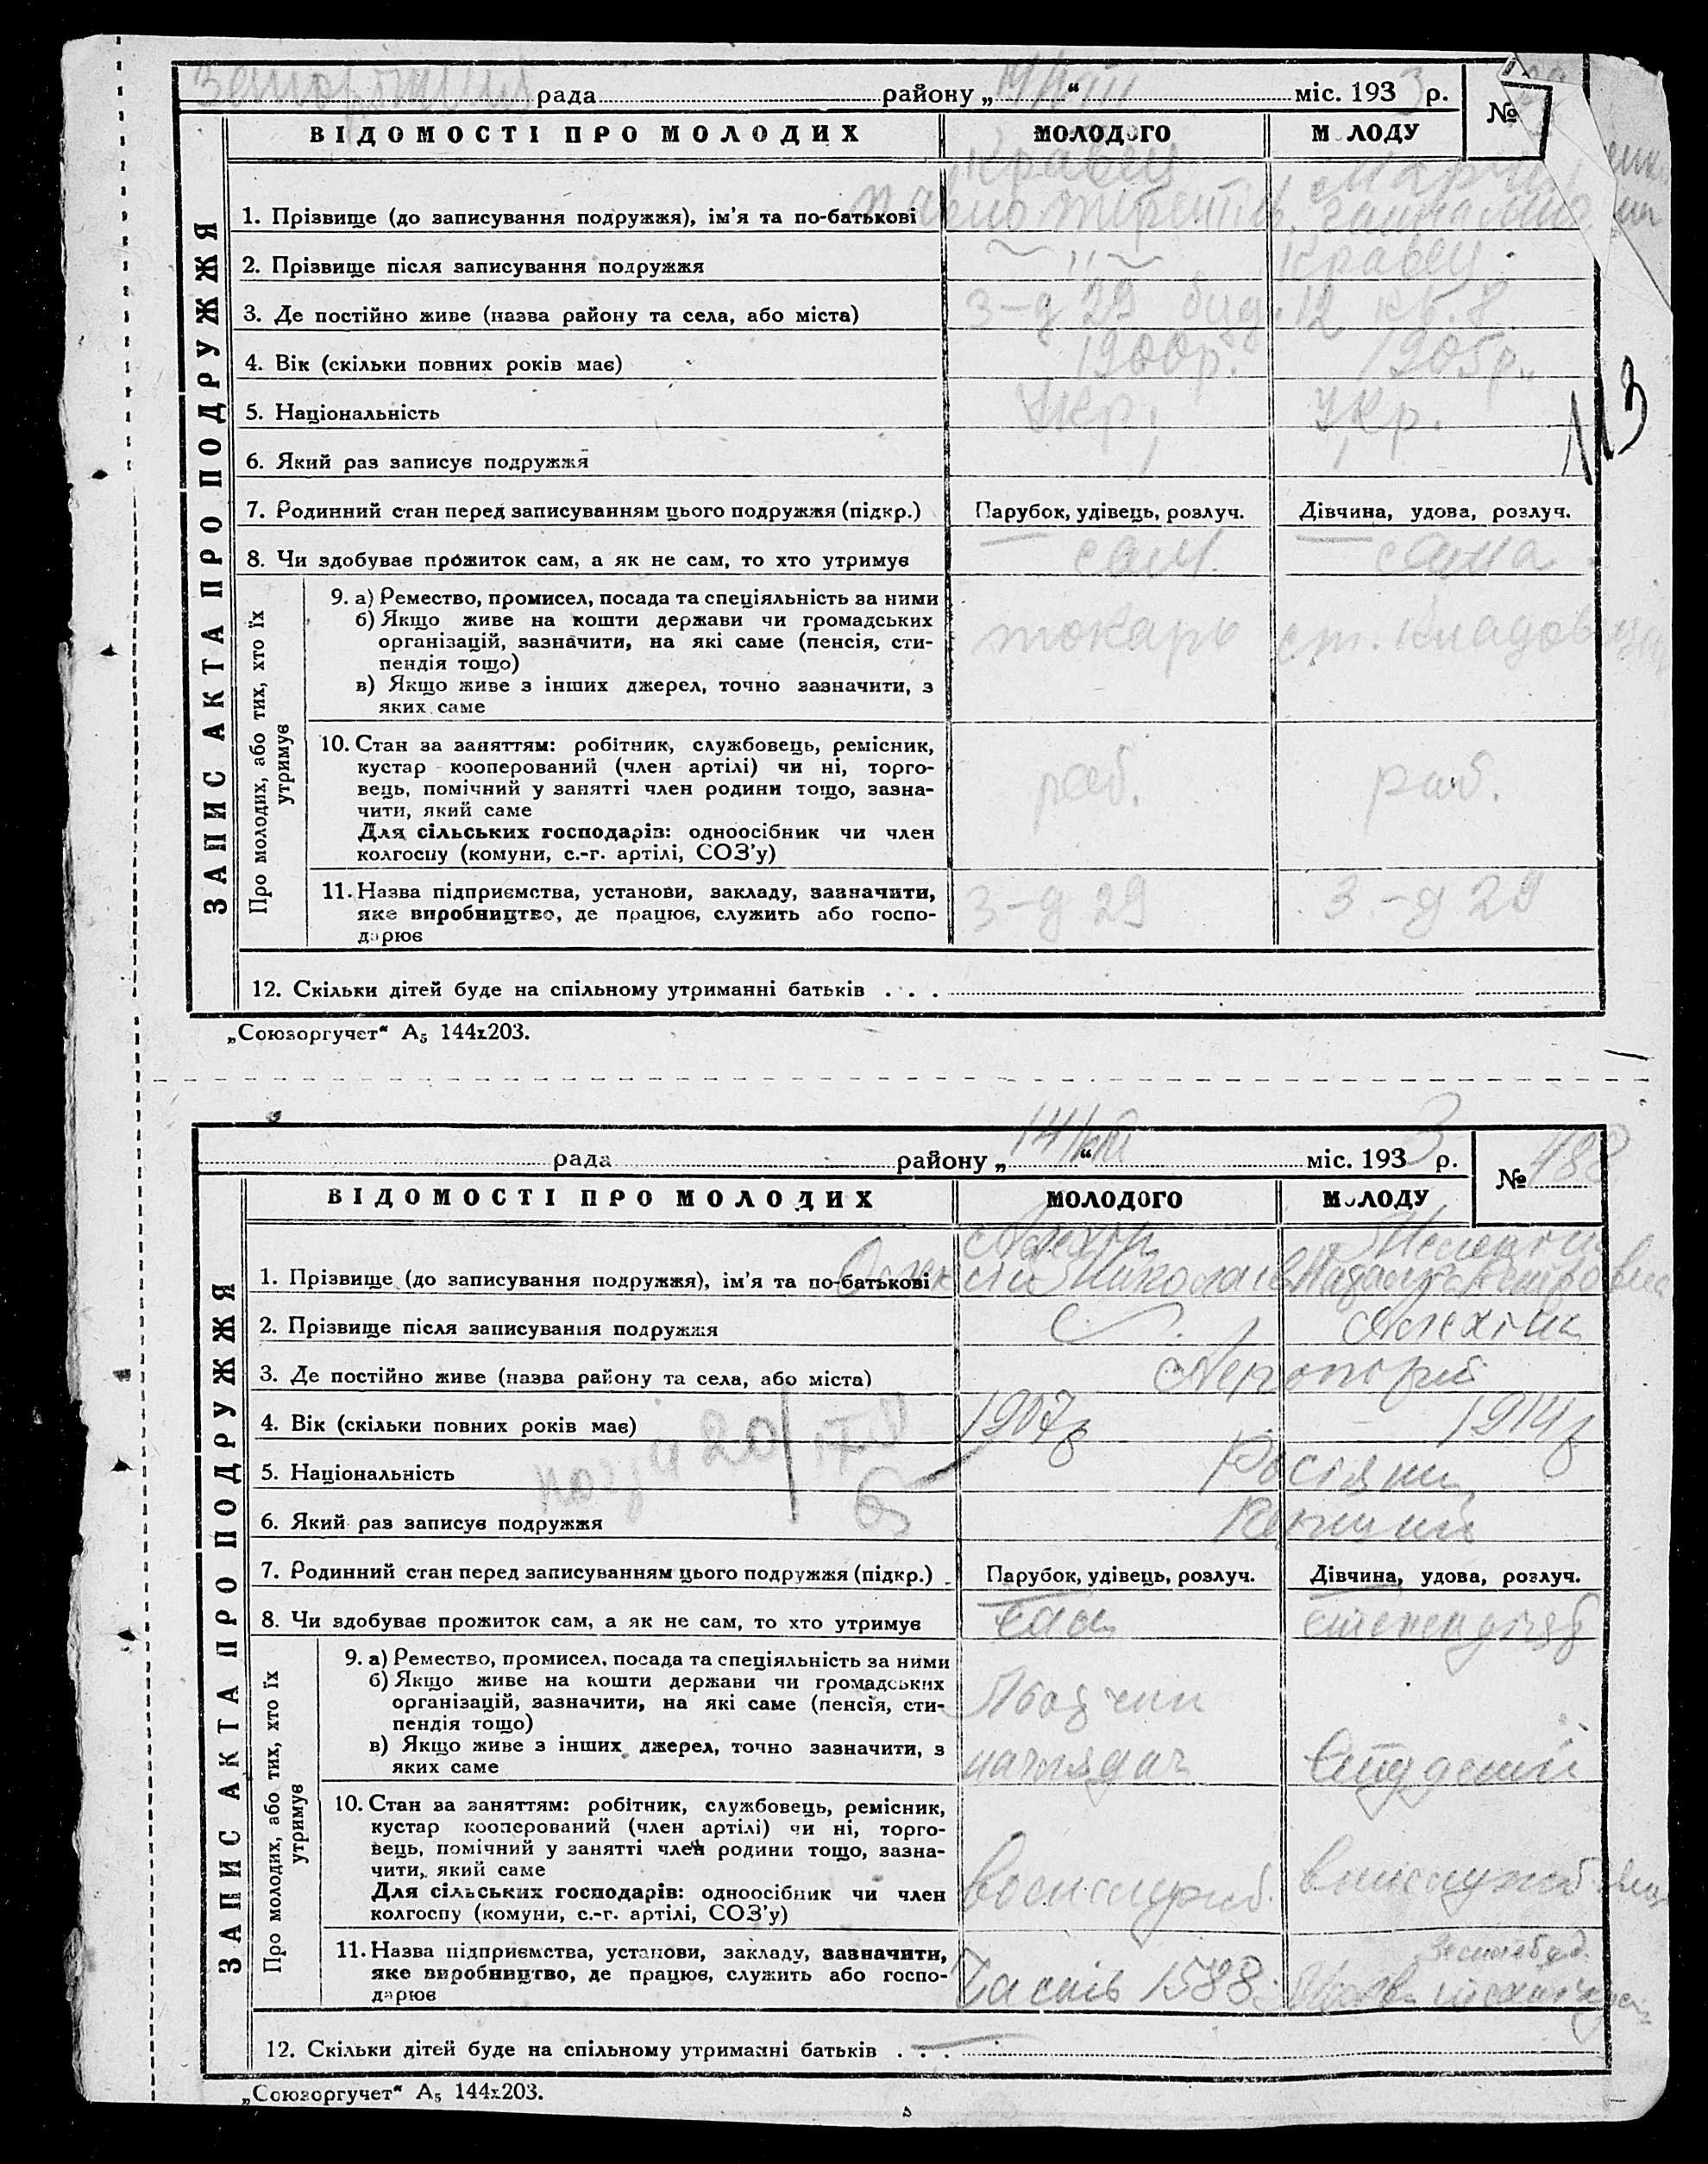 рада районуʼ „ “ міс. 1933 р. №
ЗАПИС АКТА ПРО ПОДРУЖЖЯ
ВІДОМОСТІ ПРО МОЛОДИХ МОЛОДОГО МОЛОДУ
Кравец
1. Прізвище (до записування подружжя), ім’я та по-батькові
2. Прізвище після записування подружжя — „ — Кравец
3. Де постійно живе (назва району та села, або міста) з-д 29 буд. 12 кв. 8
4. Вік (скільки повних років має) 1900р. 1905р.
5. Національність Укр. Укр.
6. Який раз записує подружжя 1 1
7. Родинний стан перед записуванням цього подружжя (підкр.) Парубок, удівець, розлуч. Дівчина, удова, розлуч.
8. Чи здобуває прожиток сам, а як не сам, то хто утримує сам. сама
113
Про молодих, або тих, хто їх утримує
9. а) Ремество, промисел, посада та спеціяльність за ними
б) Якщо живе на кошти держави чи громадських
організацій, зазначити, на які саме (пенсія, сти-
пендія тощо)
в) Якщо живе з інших джерел, точно зазначити, з
яких саме
токарь ст.
10. Стан за заняттям: робітник, службовець, ремісник,
кустар кооперований (член артілі) чи ні, торго-
вець, помічний у занятті член родини тощо, зазна-
чити, який саме
Для сільських господарів: одноосібник чи член
колгоспу (комуни, с.-г. артілі, СОЗ’у)
роб. роб.
11. Назва підприємства, установи, закладу, зазначити,
яке виробництво, де працює, служить або госпо-
дарює
з-д 29 з-д 29
12. Скільки дітей буде на спільному утриманні батьків . . .
„Союзоргучет“ А5 144х203.
рада району „ 14 “ міс. 1933 р. № 488
ЗАПИС АКТА ПРО ПОДРУЖЖЯ
ВІДОМОСТІ ПРО МОЛОДИХ МОЛОДОГО МОЛОДУ
Алехін
1. Прізвище (до записування подружжя), ім’я та по-батькові
2. Прізвище після записування подружжя Алехіна
3. Де постійно живе (назва району та села, або міста)
4. Вік (скільки повних років має) 1907р 1914р
5. Національність Росіяни
6. Який раз записує подружжя
7. Родинний стан перед записуванням цього подружжя (підкр.) Парубок, удівець, розлуч. Дівчина, удова, розлуч.
8. Чи здобуває прожиток сам, а як не сам, то хто утримує сам
Про молодих, або тих, хто їх утримує
9. а) Ремество, промисел, посада та спеціяльність за ними
б) Якщо живе на кошти держави чи громадських
організацій, зазначити, на які саме (пенсія, сти-
пендія тощо)
в) Якщо живе з інших джерел, точно зазначити, з
яких саме
10. Стан за заняттям: робітник, службовець, ремісник,
кустар кооперований (член артілі) чи ні, торго-
вець, помічний у занятті член родини тощо, зазна-
чити, який саме
Для сільських господарів: одноосібник чи член
колгоспу (комуни, с.-г. артілі, СОЗ’у)
11. Назва підприємства, установи, закладу, зазначити,
яке виробництво, де працює, служить або госпо-
дарює
Часть 1588
12. Скільки дітей буде на спільному утриманні батьків . . . —
„Союзоргучет“ А5 144х203.